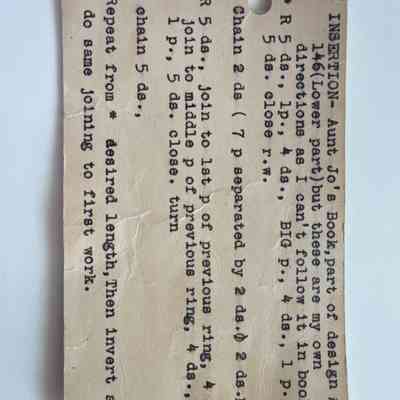 INSERTION- Aunt Jo's Book,part of design
146(Lower part)but these are my own
directions as I can't follow it in boo
* R 5 ds., 1p., 4 ds., BIG p., 4 ds., 1 p.
5 ds. close r.w.
Chain 2 ds ( 7 p separated by 2 ds.) 2 ds.
R 5 ds., join to lst p of previous ring, 4
join to middle p of previous ring, 4 ds.,
1 p., 5 ds. close. turn
chain 5 ds.,
Repeat from * desired length,Then invert a
do same joining to first work.